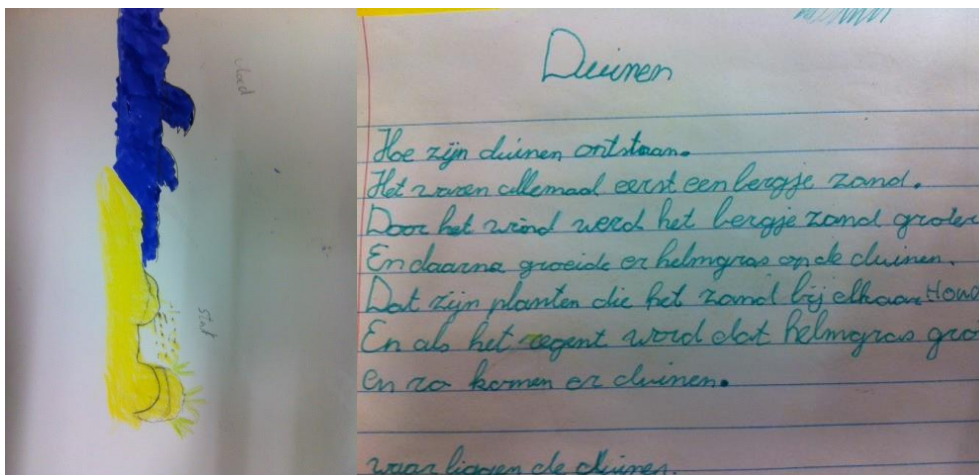 vloed
Duinen
Hoe zijn duinen ontstaan.
Het waren allemaal eerst een bergje zand.
Door het wind werd het bergje zand groter
En daarna groeide er helmgras op de duinen.
Dat zijn planten die het zand bij elkaar Houd
En als het regent word dat helmgras gro
en zo komen er duinen.
waar liggen de duinen.